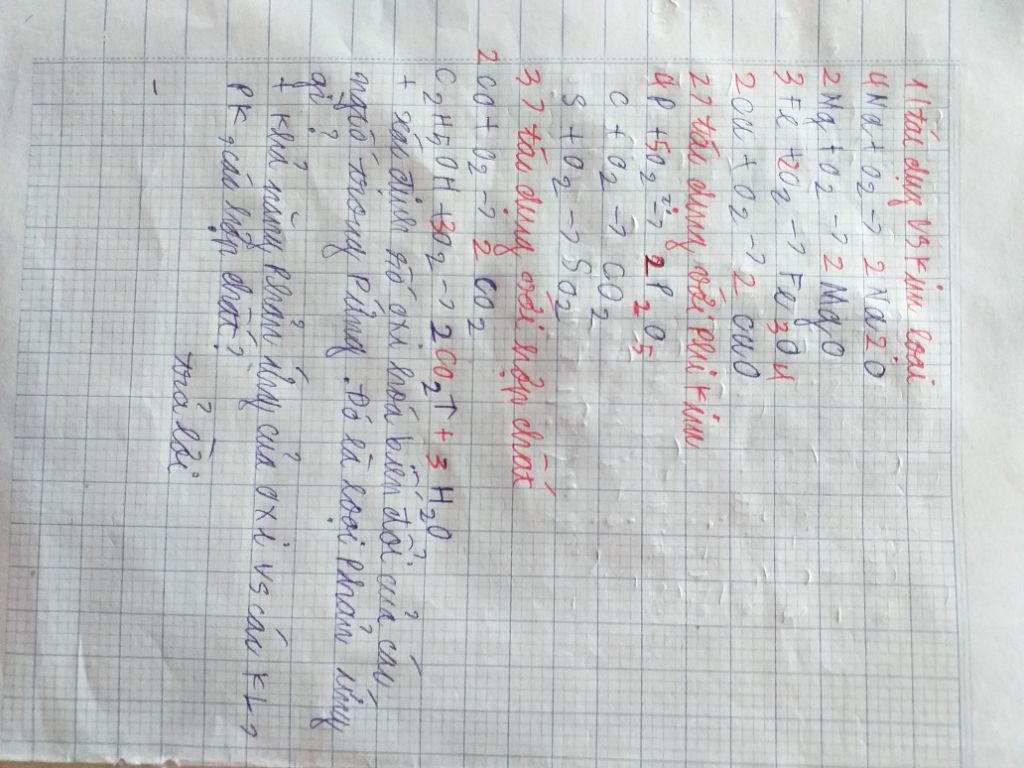 1) tác dụng vs kim loại
4Na + O2 → 2Na2O
2Mg + O2 → 2MgO
3Fe + 2O2 → Fe3O4
2Cu + O2 → 2CuO
2) tác dụng với phi kim
4P + 5O2 → 2P2O5
C + O2 → CO2
S + O2 → SO2
3) tác dụng với hợp chất
2CO + O2 → 2CO2
C2H5OH + 3O2 → 2CO2↑ + 3H2O
+ xác định số oxi hoá biến đổi của các
ngtố trong Pứng. Đó là loại Phản ứng
gì?
+ khả năng Phản ứng của oxi vs các KL,
PK, các hợp chất?
trả lời
-